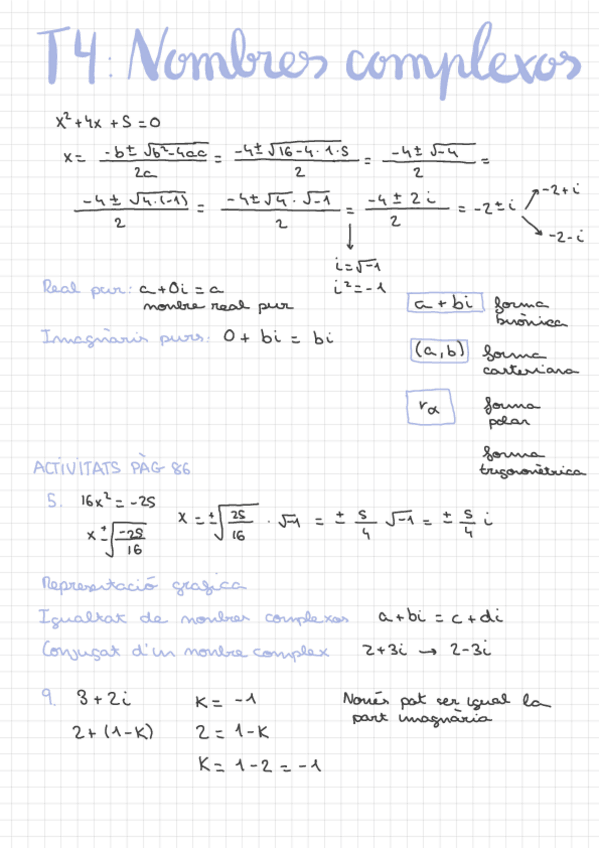 T4: Nombres complexos
x²+4x+5=0
x= (-b±√(b²-4ac))/2a = (-4±√(16-4·1·5))/2 = (-4±√-4)/2 =
(-4±√(4·(-1)))/2 = (-4±√4·√-1)/2 = (-4±2i)/2 = -2±i → -2+i
→ -2-i
↓
i=√-1
i²=-1
Real pur: a+0i=a
nombre real pur
Imaginaris purs: 0+bi=bi
a+bi forma
binòmica
(a,b) forma
cartesiana
rα forma
polar
forma
trigonomètrica
ACTIVITATS PÀG 86
5. 16x²=-25
x=±√(-25/16)
x=±√(25/16)·√-1 = ±5/4 √-1 = ±5/4 i
Representació grafica
Igualtat de nombres complexos a+bi=c+di
Conjugat d'un nombre complex 2+3i → 2-3i
9. 3+2i K=-1
2+(1-K) 2=1-K
K=1-2=-1
Només pot ser igual la
part imaginària